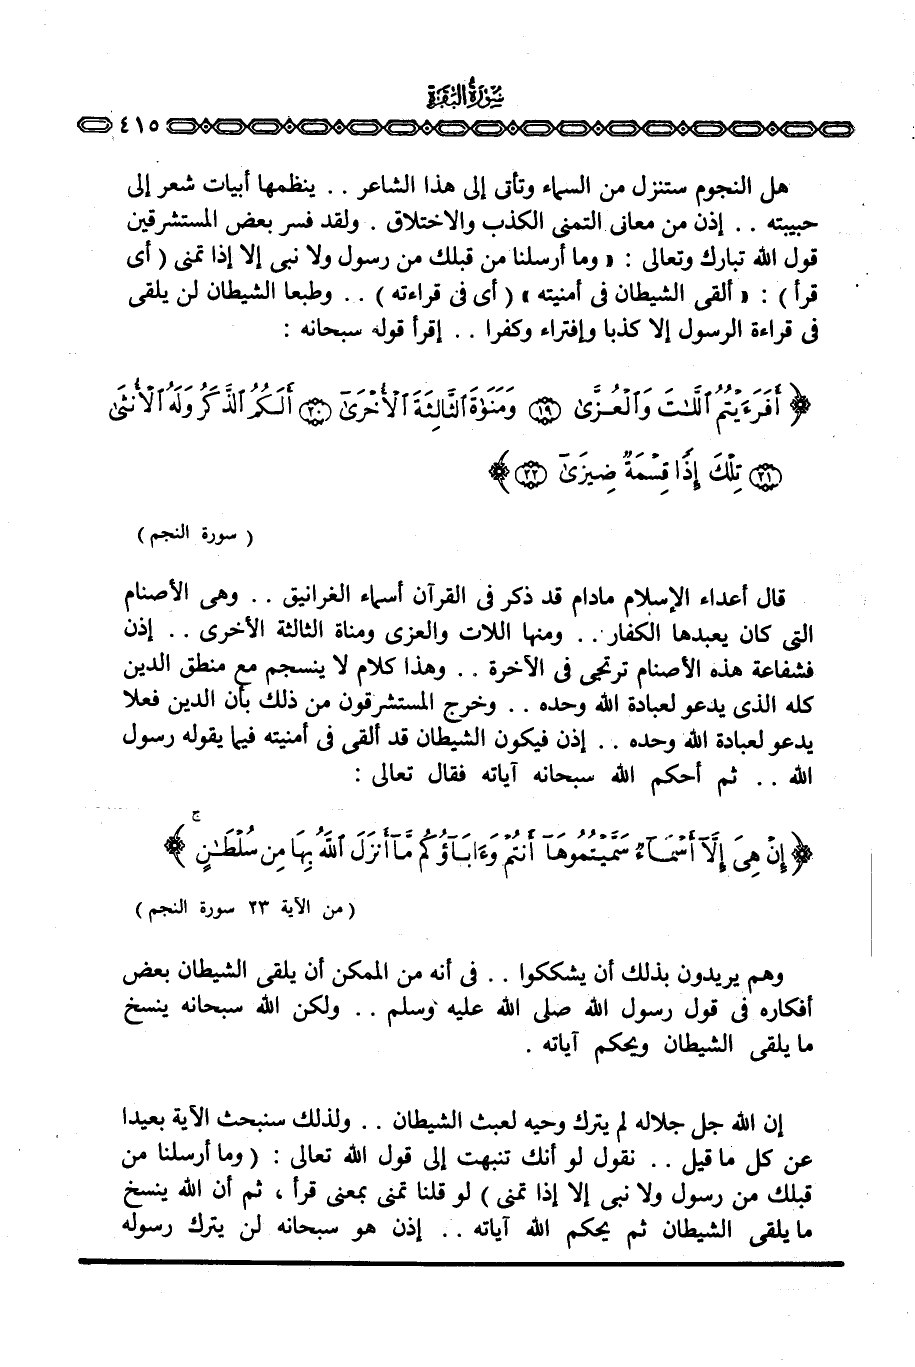 سورة البقرة
٤١٥
هل النجوم ستنزل من السماء وتأتى إلى هذا الشاعر . . ينظمها أبيات شعر إلى
حبيبته . . إذن من معانى التمنى الكذب والاختلاق . ولقد فسر بعض المستشرقين
قول الله تبارك وتعالى : « وما أرسلنا من قبلك من رسول ولا نبى إلا إذا تمنى ( أى
قرأ ) : « ألقى الشيطان فى أمنيته » ( أى فى قراءته ) . . وطبعا الشيطان لن يلقى
فى قراءة الرسول إلا كذبا وإفتراء وكفرا . . إقرأ قوله سبحانه :
﴿ أَفَرَءَيْتُمُ ٱللَّٰتَ وَٱلْعُزَّىٰ ١٩ وَمَنَوٰةَ ٱلثَّالِثَةَ ٱلْأُخْرَىٰٓ ٢٠ أَلَكُمُ ٱلذَّكَرُ وَلَهُ ٱلْأُنثَىٰ
٢١ تِلْكَ إِذًا قِسْمَةٌ ضِيزَىٰٓ ٢٢ ﴾
( سورة النجم )
قال أعداء الإسلام مادام قد ذكر فى القرآن أسماء الغرانيق . . وهى الأصنام
التى كان يعبدها الكفار . . ومنها اللات والعزى ومناة الثالثة الأخرى . . إذن
فشفاعة هذه الأصنام ترتجى فى الآخرة . . وهذا كلام لا ينسجم مع منطق الدين
كله الذى يدعو لعبادة الله وحده . . وخرج المستشرقون من ذلك بأن الدين فعلا
يدعو لعبادة الله وحده . . إذن فيكون الشيطان قد ألقى فى أمنيته فيما يقوله رسول
الله . . ثم أحكم الله سبحانه آياته فقال تعالى :
﴿ إِنْ هِىَ إِلَّآ أَسْمَآءٌ سَمَّيْتُمُوهَآ أَنتُمْ وَءَابَآؤُكُم مَّآ أَنزَلَ ٱللَّهُ بِهَا مِن سُلْطَٰنٍ ۚ ﴾
( من الآية ٢٣ سورة النجم )
وهم يريدون بذلك أن يشككوا . . فى أنه من الممكن أن يلقى الشيطان بعض
أفكاره فى قول رسول الله صلى الله عليه وسلم . . ولكن الله سبحانه ينسخ
ما يلقى الشيطان ويحكم آياته .
إن الله جل جلاله لم يترك وحيه لعبث الشيطان . . ولذلك سنبحث الآية بعيدا
عن كل ما قيل . . نقول لو أنك تنبهت إلى قول الله تعالى : ( وما أرسلنا من
قبلك من رسول ولا نبى إلا إذا تمنى ) لو قلنا تمنى بمعنى قرأ ، ثم أن الله ينسخ
ما يلقى الشيطان ثم يحكم الله آياته . . إذن هو سبحانه لن يترك رسوله